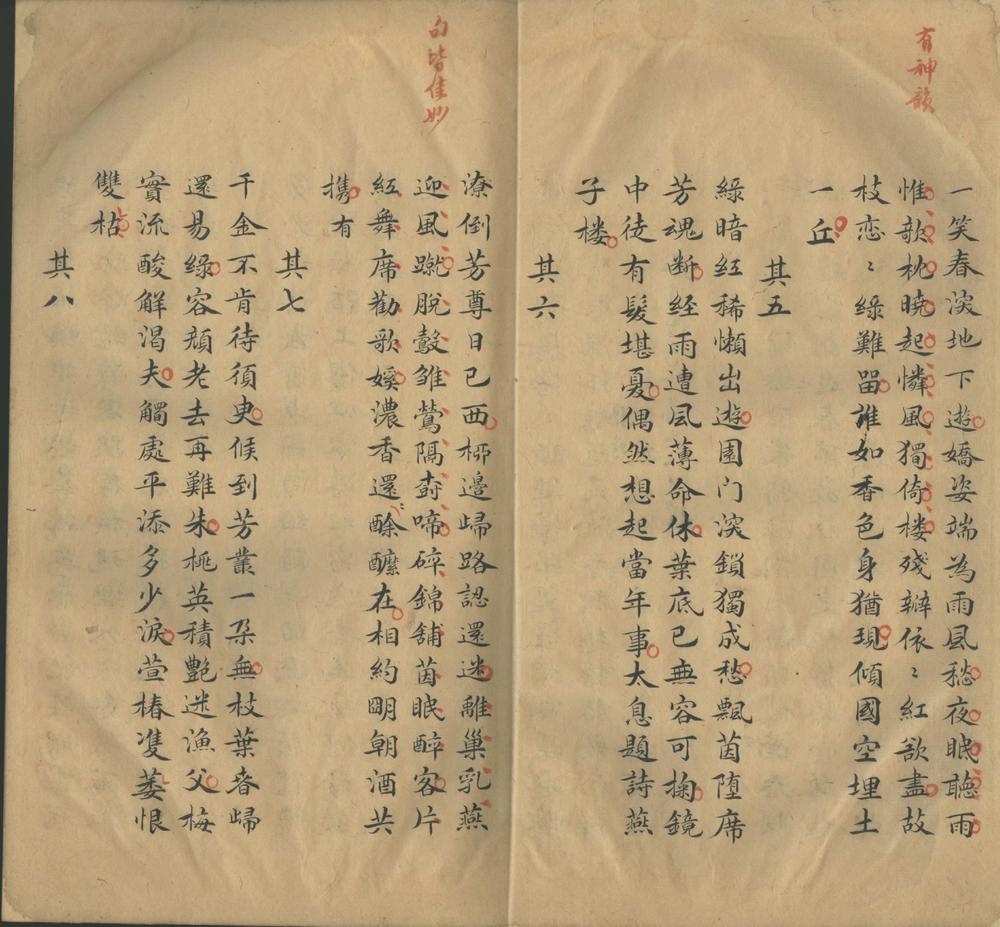 有神韻
一笑春深地下遊嬌姿端為雨風愁夜眠聽雨
惟歌枕曉起憐風獨倚楼殘辦依〻紅欲盡故
枝恋〻綠難留誰如香色身猶現傾國空埋土
一丘
其五
綠暗紅稀懶出遊園门深鎖獨成愁飄茵墮席
芳魂断经雨遭風薄命休葉底已無容可掬鏡
中徒有髮堪憂偶然想起當年事太息題詩燕
子楼
其六
句皆佳妙
潦倒芳尊日已西桺邊歸路認還迷離巢乳燕
迎風蹴脫鷇雏鶯隔樹啼碎錦舖茵眠醉客片
紅舞席勸歌媐濃香還酴醿在相約明朝酒共
携有
其七
千金不肯待須臾候到芳叢一朶無枝葉春歸
還易綠容顏老去再難朱桃英積艷迷漁父梅
實流酸解渴夫觸處平添多少淚萱椿雙萎恨
雙枯
其八